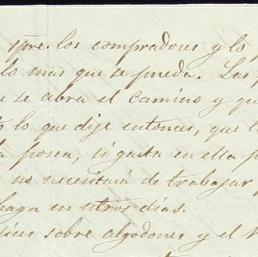 spre. los compradores y lo
lo mas que se pueda. Las
se abra el camino y
lo que dije entonces, que
posea, si gasta en ella
no necesitará de trabajar
haga en otros dias.
sobre algodones y el